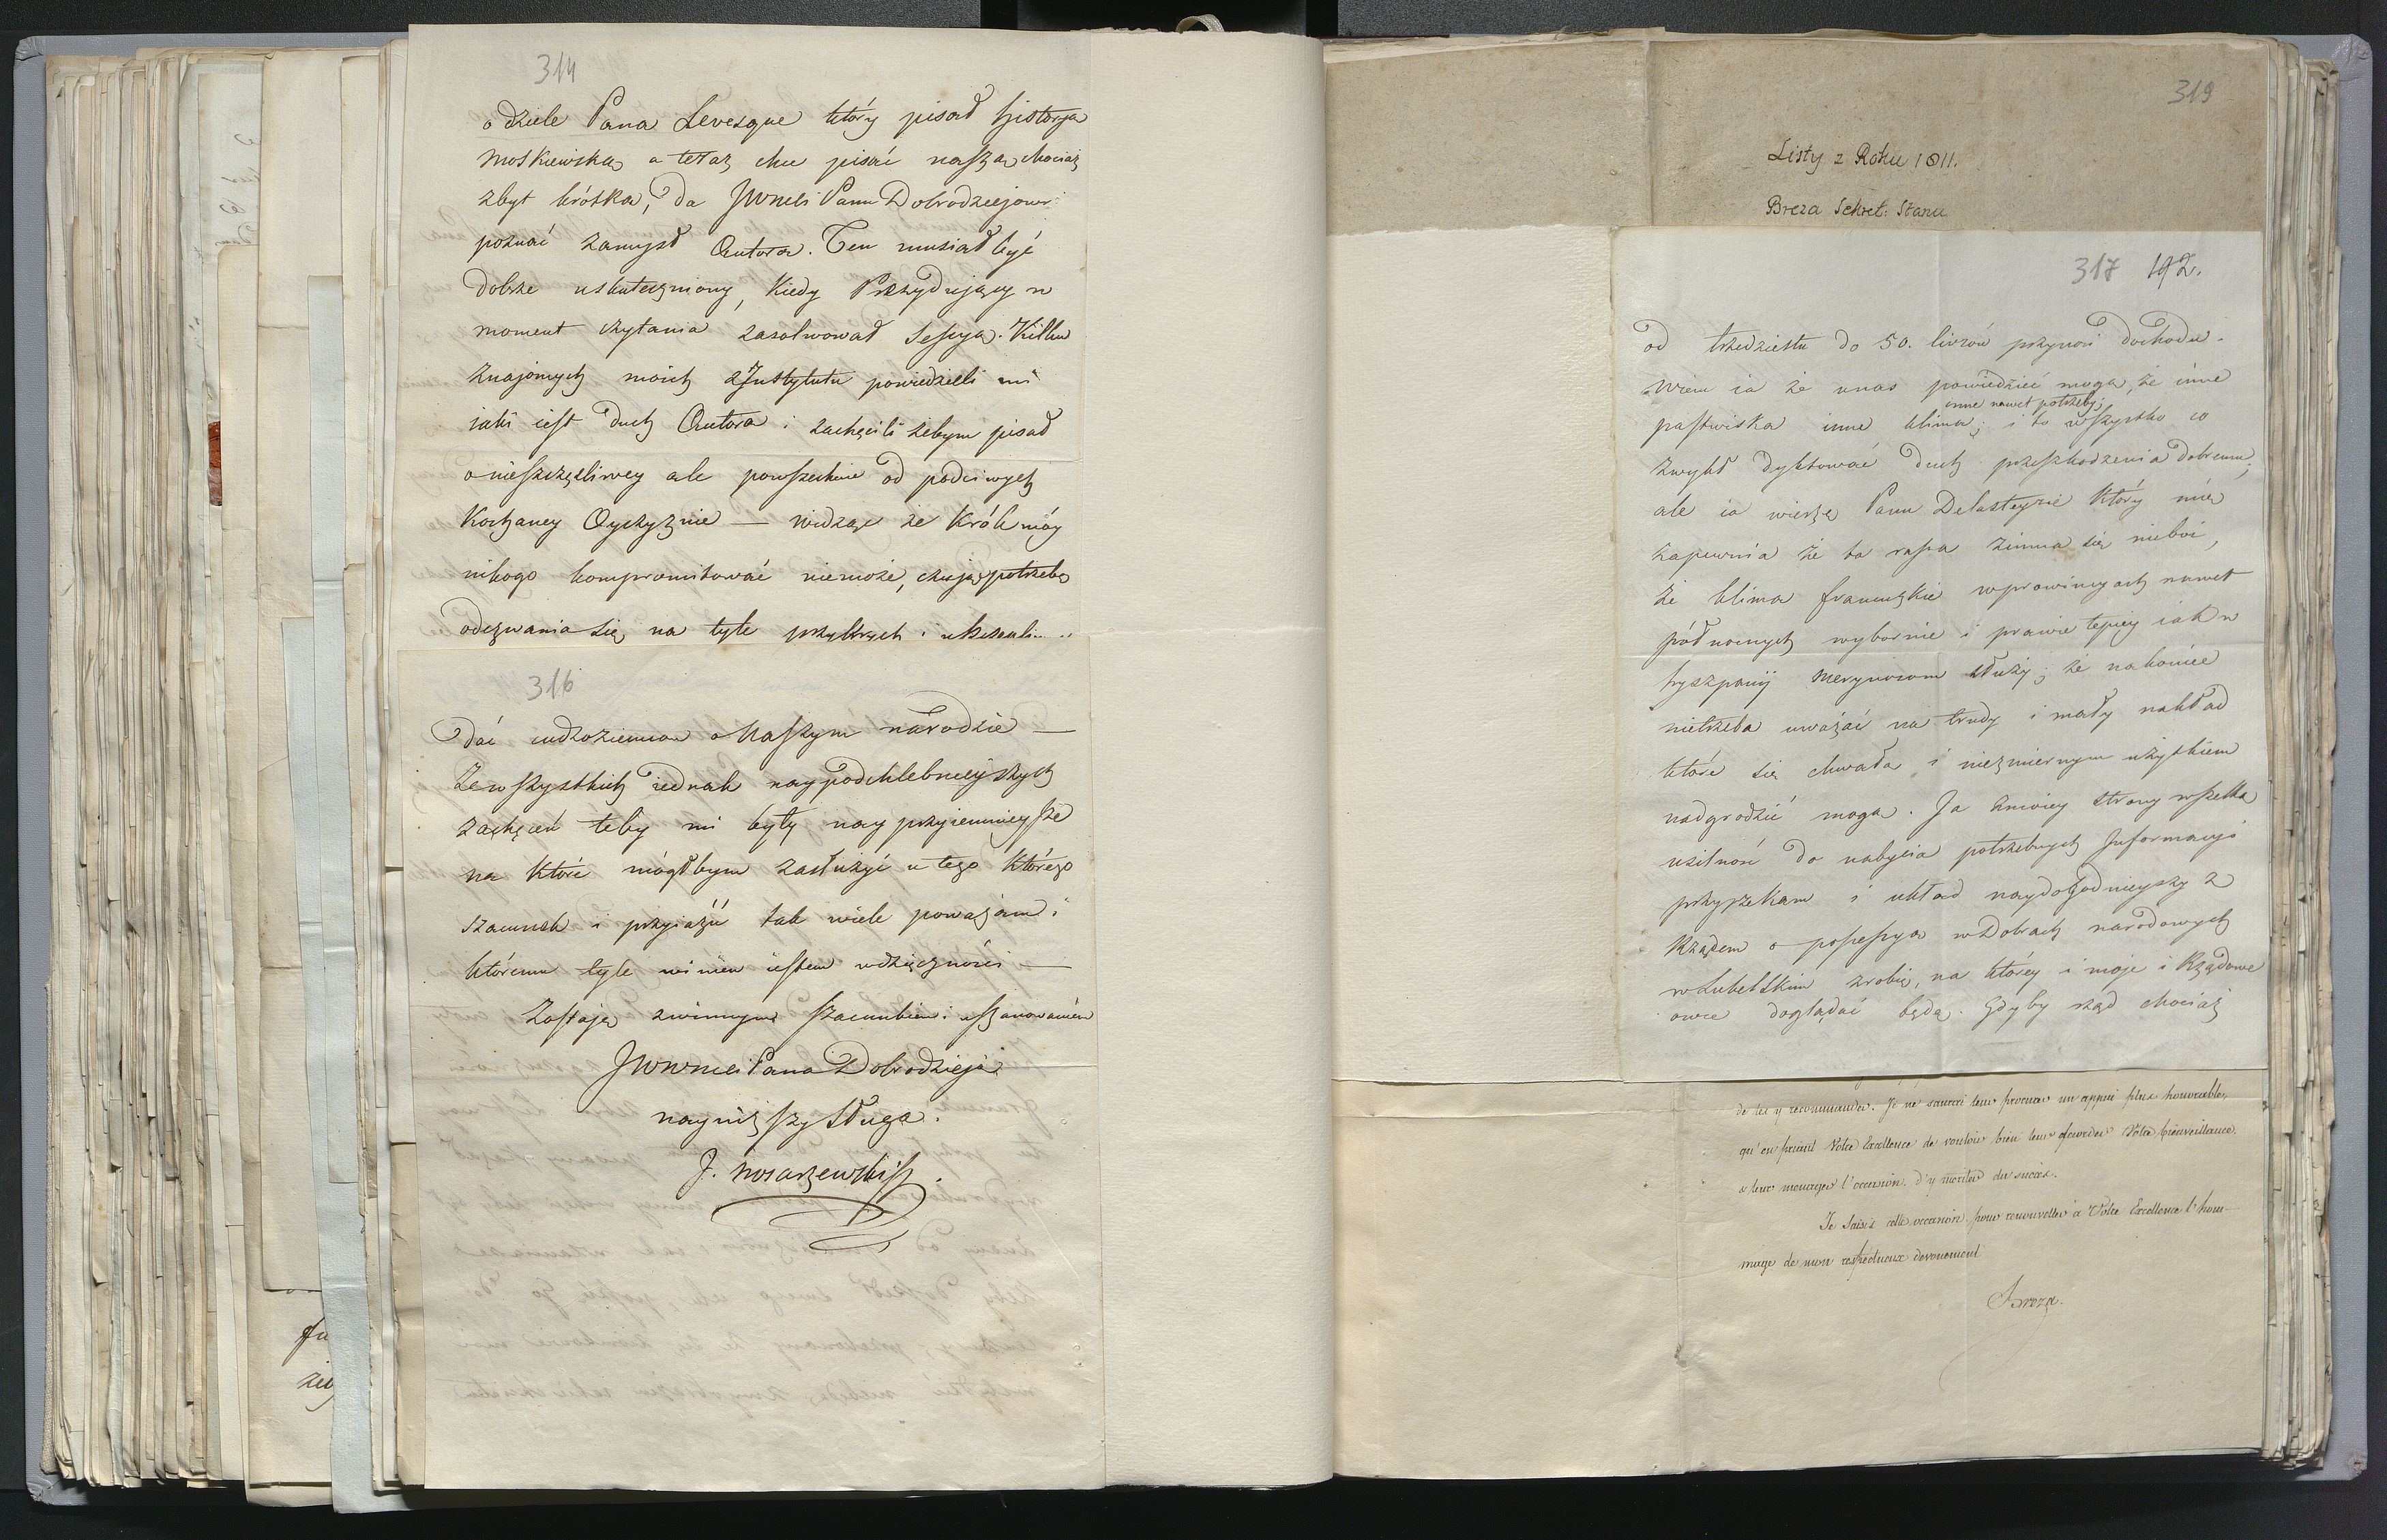 314
o dziele Pana Levesque który pisał historyą
moskiewską a teraz chce pisać naszą chociaż
zbyt krótką, da JWMci Panu Dobrodziejowi
poznać zamysł Autora. Ten musiał być
dobrze uskuteczniony, kiedy Prezydujący w
moment czytania zasolwował Sessyą. Kilku
znajomych moich z Instytutu powiedzieli mi
iaki iest duch Autora i zachęcili żebym pisał
o nieszczęśliwey ale powszechnie od poczciwych
kochaney Oyczyznie — widząc że krok móy
nikogo kompromitować niemoże, czując potrzebę
odezwania się na tyle przykrych i
316
dać cudzoziemca o Naszym narodzie —
Ze wszystkich iednak naypochlebnieyszych
zachęceń teby mi były nayprzyiemnieysze
na które mógłbym zasłużyć u tego którego
szacunek i przyiaźń tak wiele poważam i
któremu tyle winien iestem wdzięczności —
Zostaję z winnym szacunkiem i uszanowaniem
JWWMci Pana Dobrodzieja
nayniższy Sługa.
J. Nosarzewski
319
Listy z Roku 1811.
Breza Sekret: Stanu
317 192.
od trzydziestu do 50. liwrów przynosi dochodu.
Wiem ia że unas powiedzieć mogą, że inne
inne nawet potrzeby;
pastwiska inne klima; i to wszystko co
zwykł dyktować duch przeszkodzenia dobremu;
ale ia wierzę Panu Delasteyrie który mię
zapewnia że ta rassa zimna się nieboi,
że klima francuzkie w prowincyach nawet
północnych wybornie i prawie lepiey iak w
hyszpanij merynosom służy; że nakoniec
nietrzeba uważać na trudy i mały nakład
które się chwałą i niezmiernym użytkiem
nadgrodzić mogą. Ja zmoiey strony wszelką
usilność do nabycia potrzebnych Informacyi
przyrzekam i układ naydogodnieyszy z
Rządem o possessyą w Dobrach narodowych
w Lubelskim zrobię, na którey i moje i Rządowe
owce doglądać będę. Gdyby rząd chociaż
de les y recommander. Je ne saurai leur procurer un appui plus honorable,
qu'en priant Votre Excellence de vouloir bien leur accorder Votre bienveillance,
& leur menager l'occasion d'y meriter du succès.
Je saisis cette occasion pour renouveller à Votre Excellence l'hom-
mage de mon respectueux devouement
Breza.